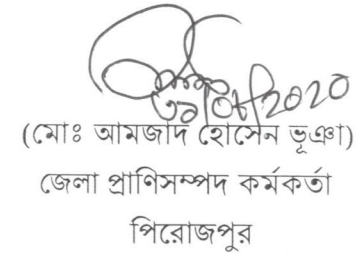 ৩১/০৮/2020
(মোঃ আমজাদ হোসেন ভূঞা)
জেলা প্রাণিসম্পদ কর্মকর্তা
পিরোজপুর